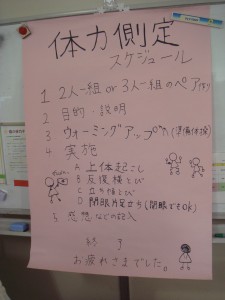 体力測定
スケジュール
1 2人一組 or 3人一組のペア作り
2 目的・説明
3 ウォーミングアップ(準備体操)
4 実施
A 上体起こし
B 反復横とび
C 立ち幅とび
D 閉眼片足立ち(開眼でもOK)
5 感想などの記入
終了
お疲れさまでした。